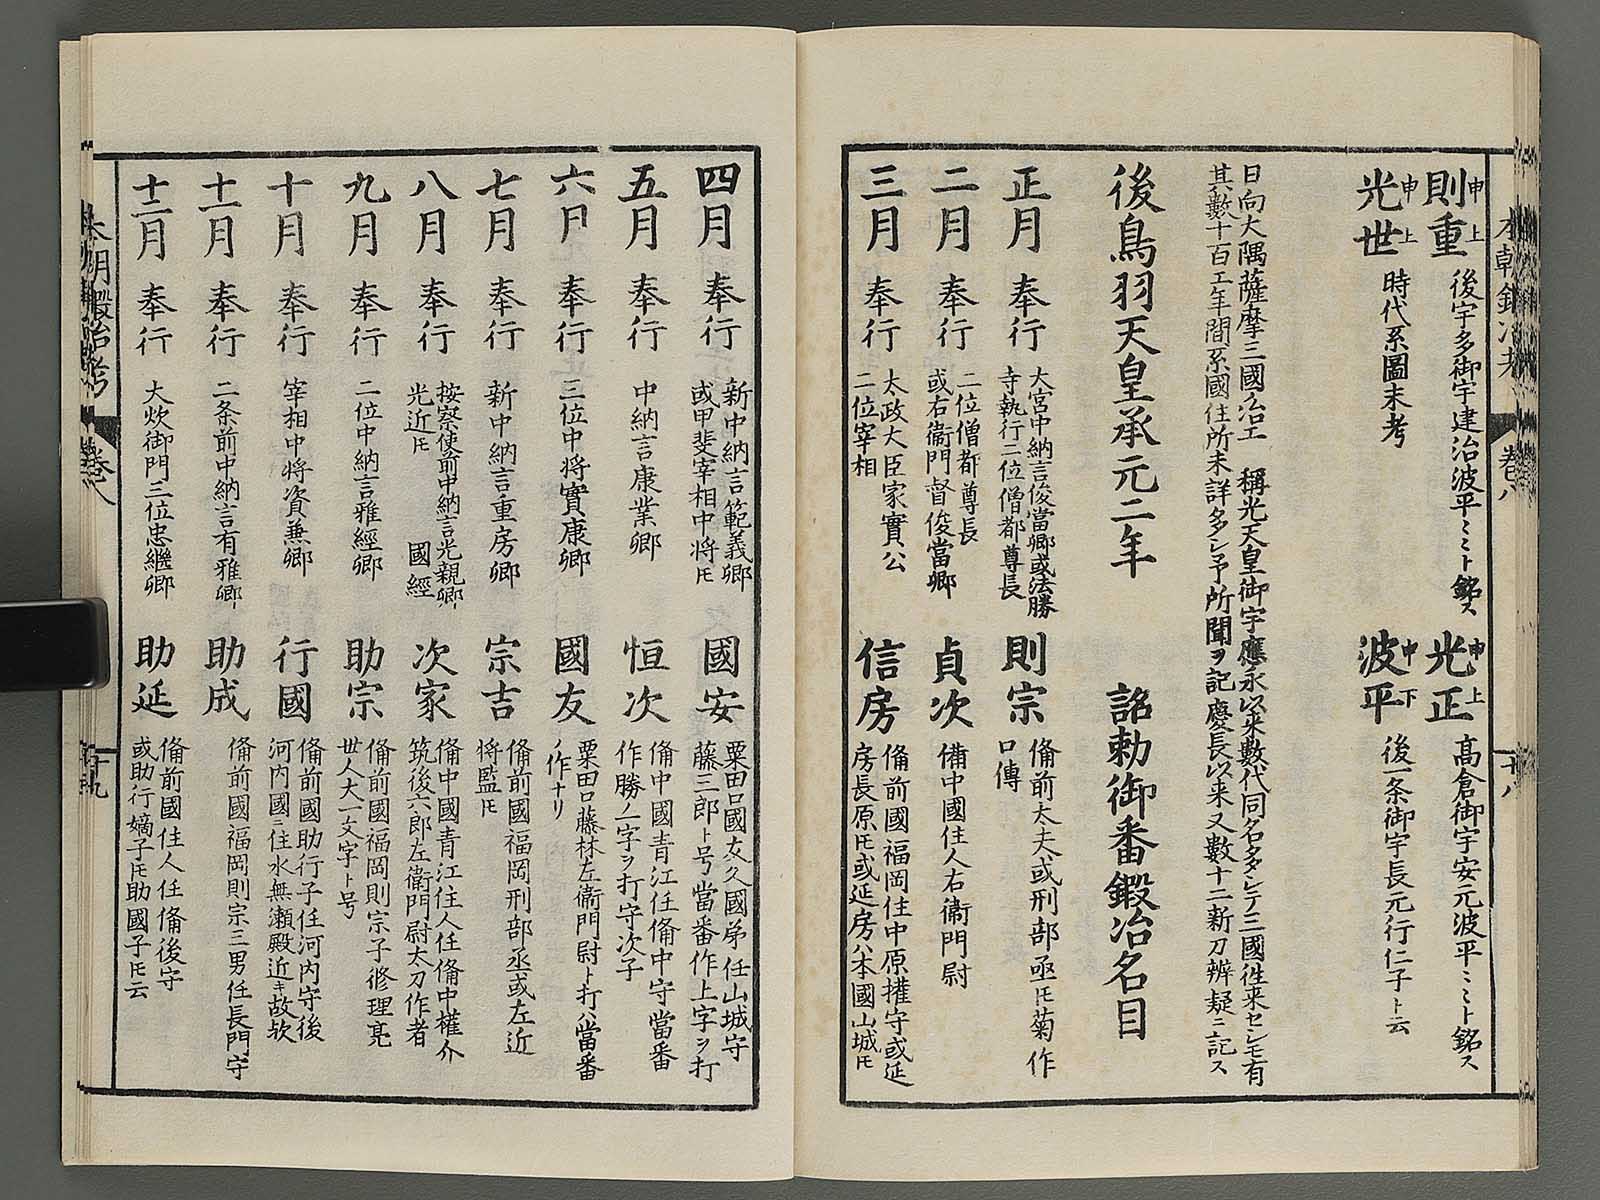 則重 申上 後宇多御宇建治波平ミミト銘ス
光正 申上 高倉御宇安元波平ミミト銘ス
光世 申上 時代系圖末考
波平 申下 後一条御宇長元行仁子ト云
日向大隅薩摩三國ノ冶工 稱光天皇御宇應永以来數代同名多シテ三國徃来セシモ有
其數十百工年間系國住所未詳多シ予所聞ヲ記應長以来又數十二新刀辨疑ニ記ス
後鳥羽天皇承元二年 詔勅御番鍛冶名目
正月 奉行 大宮中納言俊當卿或法勝
寺執行二位僧都尊長
則宗 俻前太夫或刑部亟圧菊作
口傳
二月 奉行 二位僧都尊長
或右衞門督俊當卿
貞次 備中國住人右衞門尉
三月 奉行 太政大臣家實公
二位宰相
信房 俻前國福岡住中原權守或延
房長原圧或延房ハ本國山城圧
四月 奉行 新中納言範義卿
或甲斐宰相中将圧
國安 粟田口國友久國弟任山城守
藤三郎ト号當番作上字ヲ打
五月 奉行 中納言康業卿
恒次 俻中國青江任俻中守當番
作勝ノ一字ヲ打守次子
六月 奉行 三位中将實康卿
國友 粟田口藤林左衞門尉ト打ハ當番
ノ作ナリ
七月 奉行 新中納言重房卿
宗吉 俻前國福岡刑部丞或左近
将監圧
八月 奉行 按察使前中納言光親卿
光近圧 國經
次家 俻中國青江住人任俻中權介
筑後六郎左衞門尉太刀作者
九月 奉行 二位中納言雅經卿
助宗 俻前國福岡則宗子修理亮
世人大一文字ト号
十月 奉行 宰相中将資兼卿
行國 俻前國助行子任河内守後
河内國ニ住水無瀬殿近キ故欤
十一月 奉行 二条前中納言有雅卿
助成 俻前國福岡則宗三男任長門守
十二月 奉行 大炊御門三位忠繼卿
助延 俻前國住人任俻後守
或助行嫡子圧助國子圧云
本朝鍛冶考 巻八 十九
本朝鍛冶考 巻八 十八